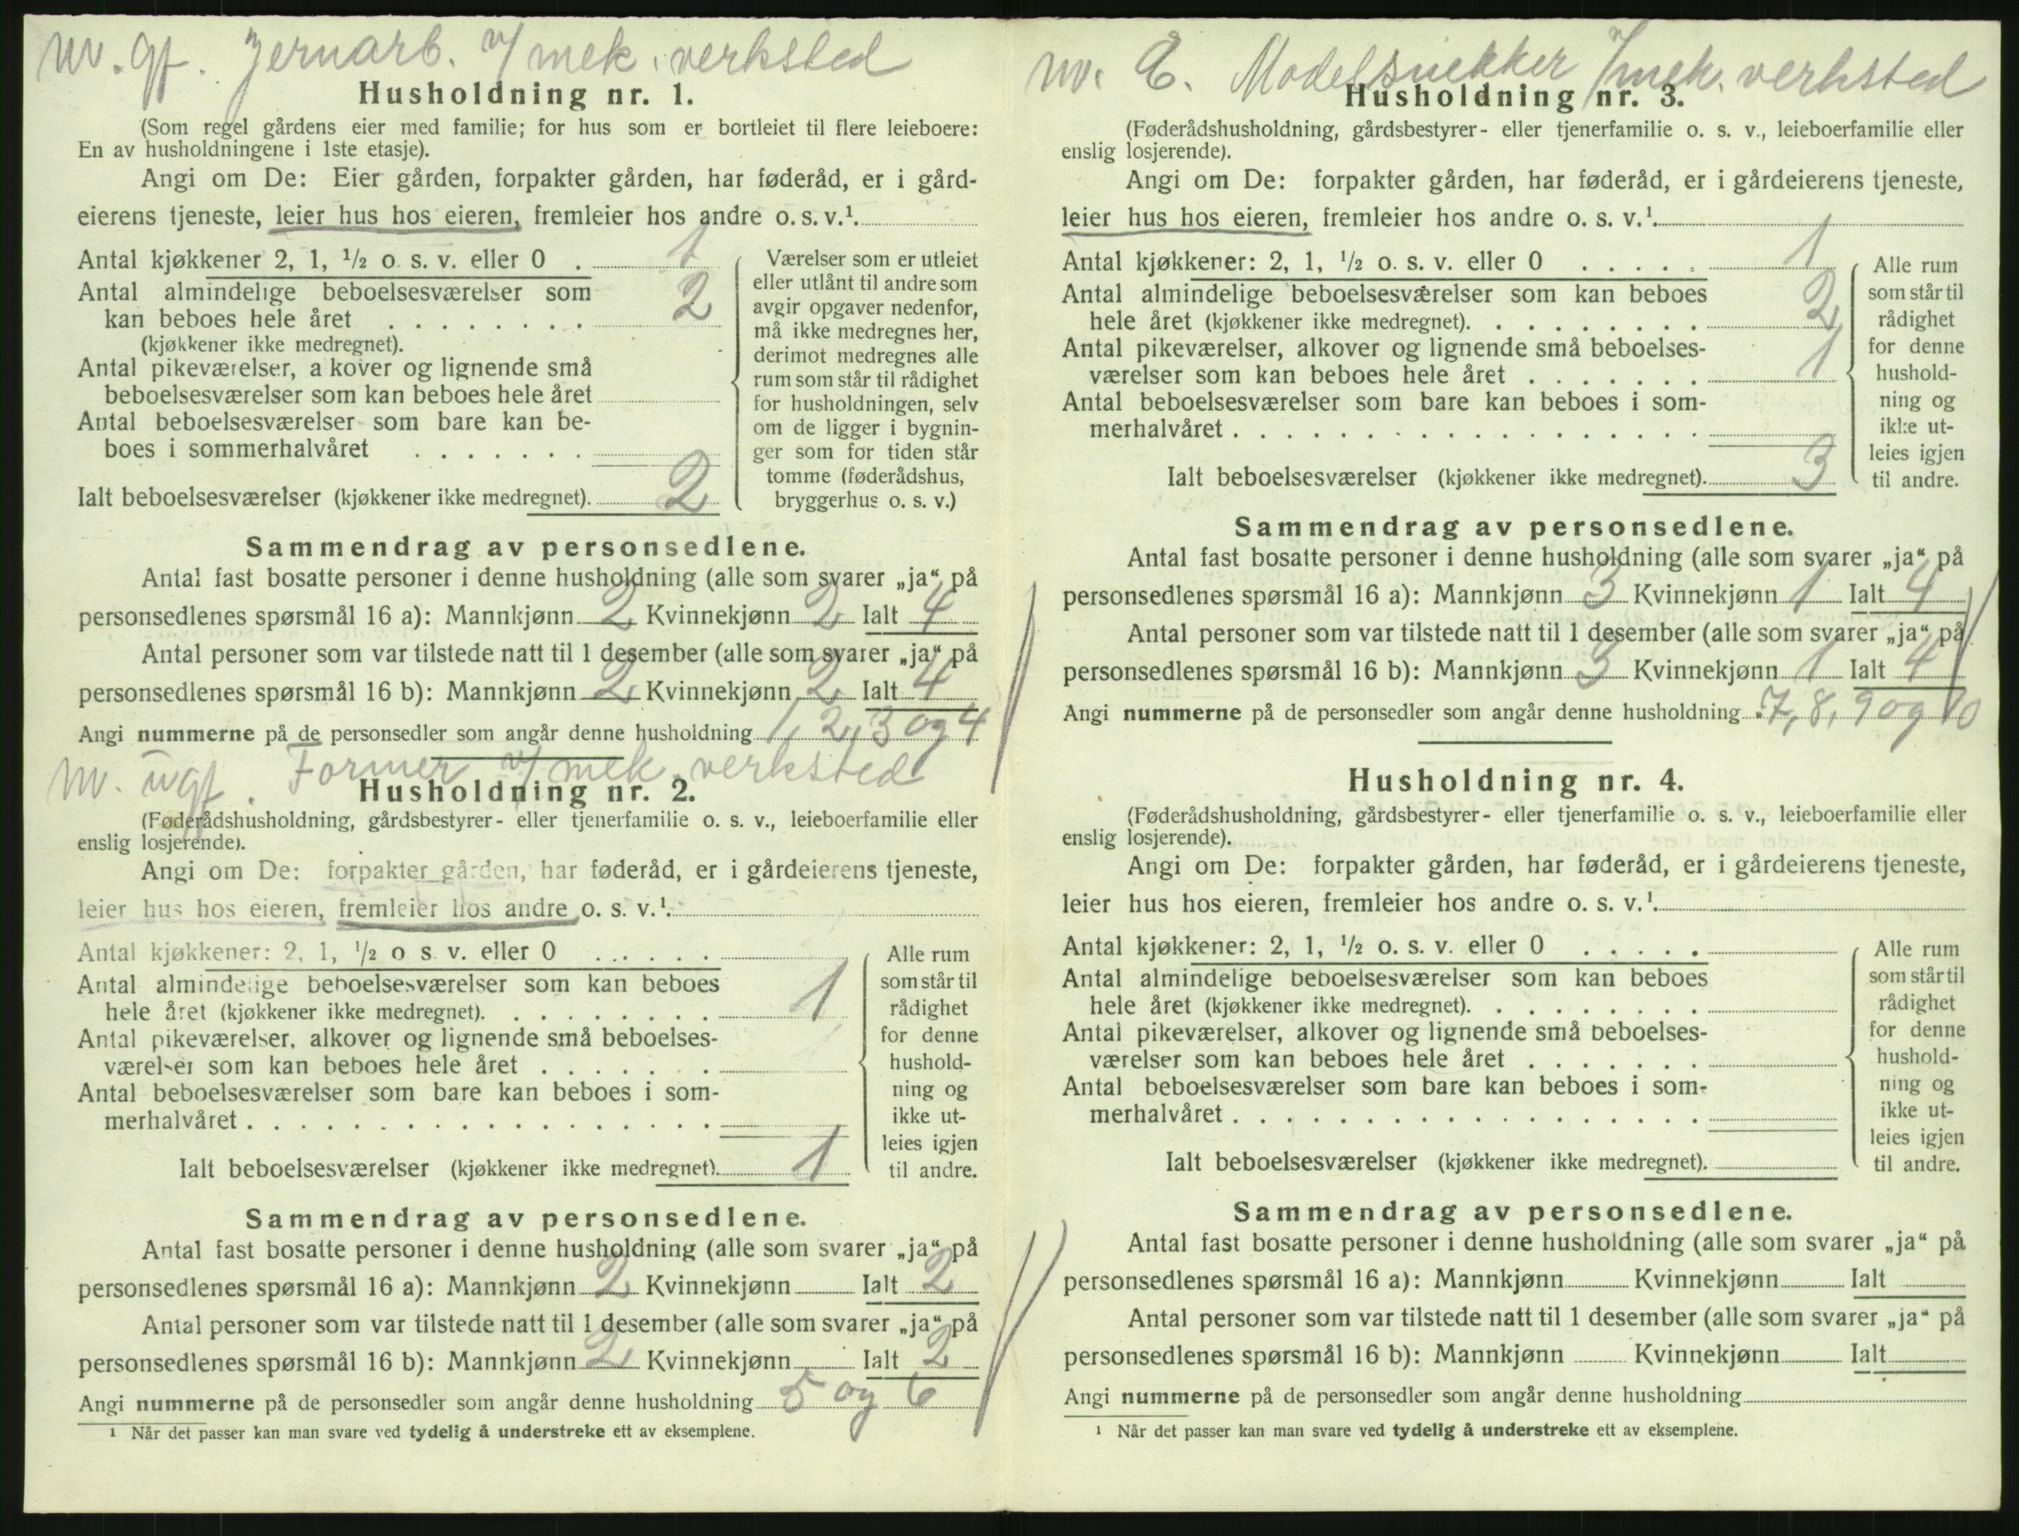 nv. gf. Jernarb. v/ mek. verksted
Husholdning nr. 1.
(Som regel gårdens eier med familie; for hus som er bortleiet til flere leieboere:
En av husholdningene i 1ste etasje).
Angi om De: Eier gården, forpakter gården, har føderåd, er i gård-
eierens tjeneste, leier hus hos eieren, fremleier hos andre o. s. v.¹.
Antal kjøkkener 2, 1, ½ o. s. v. eller 0 . 1
Antal almindelige beboelsesværelser som
kan beboes hele året . . . . . . . . 2
(kjøkkener ikke medregnet).
Antal pikeværelser, a kover og lignende små
beboelsesværelser som kan beboes hele året
Antal beboelsesværelser som bare kan be-
boes i sommerhalvåret . . . . . . .
Ialt beboelsesværelser (kjøkkener ikke medregnet). 2
Værelser som er utleiet
eller utlånt til andre som
avgir opgaver nedenfor,
må ikke medregnes her,
derimot medregnes alle
rum som står til rådighet
for husholdningen, selv
om de ligger i bygnin-
ger som for tiden står
tomme (føderådshus,
bryggerhus o. s. v.)
Sammendrag av personsedlene.
Antal fast bosatte personer i denne husholdning (alle som svarer „ja“ på
personsedlenes spørsmål 16 a): Mannkjønn 2 Kvinnekjønn 2 Ialt 4
Antal personer som var tilstede natt til 1 desember (alle som svarer „ja“ på
personsedlenes spørsmål 16 b): Mannkjønn 2 Kvinnekjønn 2 Ialt 4
Angi nummerne på de personsedler som angår denne husholdning 1, 2, 3 og 4
nv. ugf. Former v/ mek. verksted
Husholdning nr. 2.
(Føderådshusholdning, gårdsbestyrer- eller tjenerfamilie o. s. v., leieboerfamilie eller
enslig losjerende).
Angi om De: forpakter gården, har føderåd, er i gårdeierens tjeneste,
leier hus hos eieren, fremleier hos andre o. s. v.¹.
Antal kjøkkener: 2, 1, ½ o s v. eller 0 . . . . .
Antal almindelige beboelsesværelser som kan beboes
hele året (kjøkkener ikke medregnet). . . . . . . . . 1
Antal pikeværelser, alkover og lignende små beboelses-
værelser som kan beboes hele året . . . . . . .
Antal beboelsesværelser som bare kan beboes i som-
merhalvåret . . . . . . . . . . . . . . . . . .
Ialt beboelsesværelser (kjøkkener ikke medregnet). 1
Alle rum
som står til
rådighet
for denne
hushold-
ning og
ikke ut-
leies igjen
til andre.
Sammendrag av personsedlene.
Antal fast bosatte personer i denne husholdning (alle som svarer „ja“ på
personsedlenes spørsmål 16 a): Mannkjønn 2 Kvinnekjønn Ialt 2
Antal personer som var tilstede natt til 1 desember (alle som svarer „ja“ på
personsedlenes spørsmål 16 b): Mannkjønn 2 Kvinnekjønn Ialt 2
Angi nummerne på de personsedler som angår denne husholdning 5 og 6
¹ Når det passer kan man svare ved tydelig å understreke ett av eksemplene.
nv. E. Modelsnekker v/ mek. verksted
Husholdning nr. 3.
(Føderådshusholdning, gårdsbestyrer- eller tjenerfamilie o. s. v., leieboerfamilie eller
enslig losjerende).
Angi om De: forpakter gården, har føderåd, er i gårdeierens tjeneste,
leier hus hos eieren, fremleier hos andre o. s. v.¹.
Antal kjøkkener: 2, 1, ½ o. s. v. eller 0 . . . . . 1
Antal almindelige beboelsesværelser som kan beboes
hele året (kjøkkener ikke medregnet). . . . . . . . . 2
Antal pikeværelser, alkover og lignende små beboelses-
værelser som kan beboes hele året . . . . . . . 1
Antal beboelsesværelser som bare kan beboes i som-
merhalvåret . . . . . . . . . . . . . . . . . .
Ialt beboelsesværelser (kjøkkener ikke medregnet). 3
Alle rum
som står til
rådighet
for denne
hushold-
ning og
ikke ut-
leies igjen
til andre.
Sammendrag av personsedlene.
Antal fast bosatte personer i denne husholdning (alle som svarer „ja“ på
personsedlenes spørsmål 16 a): Mannkjønn 3 Kvinnekjønn 1 Ialt 4
Antal personer som var tilstede natt til 1 desember (alle som svarer „ja“ på
personsedlenes spørsmål 16 b): Mannkjønn 3 Kvinnekjønn 1 Ialt 4
Angi nummerne på de personsedler som angår denne husholdning 7, 8, 9 og 10
Husholdning nr. 4.
(Føderådshusholdning, gårdsbestyrer- eller tjenerfamilie o. s. v., leieboerfamilie eller
enslig losjerende).
Angi om De: forpakter gården, har føderåd, er i gårdeierens tjeneste,
leier hus hos eieren, fremleier hos andre o. s. v.¹.
Antal kjøkkener: 2, 1, ½ o. s. v. eller 0 . . . . .
Antal almindelige beboelsesværelser som kan beboes
hele året (kjøkkener ikke medregnet). . . . . . . . .
Antal pikeværelser, alkover og lignende små beboelses-
værelser som kan beboes hele året . . . . . . .
Antal beboelsesværelser som bare kan beboes i som-
merhalvåret . . . . . . . . . . . . . . . . . .
Ialt beboelsesværelser (kjøkkener ikke medregnet).
Alle rum
som står til
rådighet
for denne
hushold-
ning og
ikke ut-
leies igjen
til andre.
Sammendrag av personsedlene.
Antal fast bosatte personer i denne husholdning (alle som svarer „ja“ på
personsedlenes spørsmål 16 a): Mannkjønn Kvinnekjønn Ialt
Antal personer som var tilstede natt til 1 desember (alle som svarer „ja“ på
personsedlenes spørsmål 16 b): Mannkjønn Kvinnekjønn Ialt
Angi nummerne på de personsedler som angår denne husholdning
¹ Når det passer kan man svare ved tydelig å understreke ett av eksemplene.